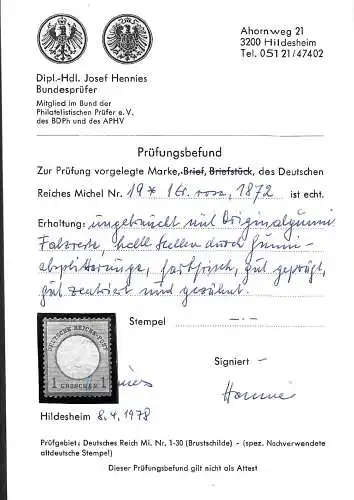 Ahornweg 21
3200 Hildesheim
Tel. 05121/47402
Dipl.-Hdl. Josef Hennies
Bundesprüfer
Mitglied im Bund der
Philatelistischen Prüfer e. V.
des BDPh und des APHV
Prüfungsbefund
Zur Prüfung vorgelegte Marke, Brief, Briefstück, des Deutschen
Reiches Michel Nr. 19* 1 Gr. rosa, 1872 ist echt.
Erhaltung: ungebraucht mit Originalgummi
Falzreste, helle Stellen durch Gummi-
absplitterung, farbfrisch, gut geprägt,
gut zentriert und gezähnt.
Stempel -.-
DEUTSCHE REICHS-POST
1 GROSCHEN 1
Signiert -
Hennies
Hildesheim 8.4.1978
Prüfgebiet: Deutsches Reich Mi. Nr. 1-30 (Brustschilde) - (spez. Nachverwendete
altdeutsche Stempel)
Dieser Prüfungsbefund gilt nicht als Attest